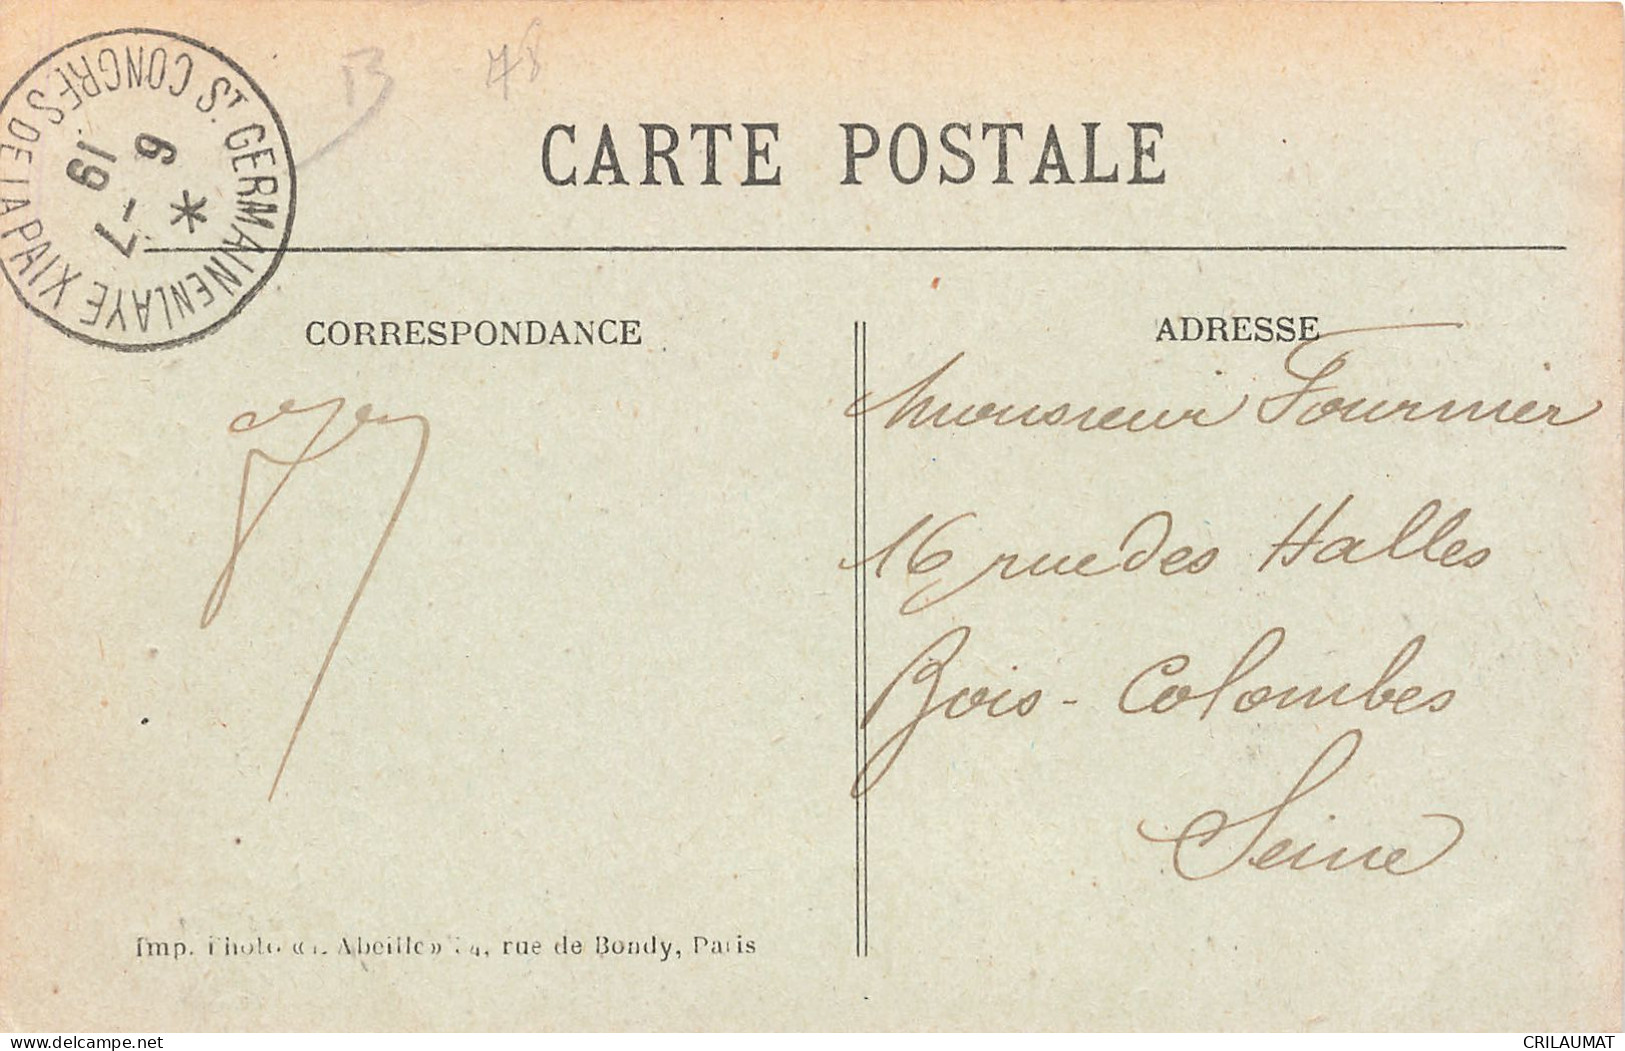 B 78
ST GERMAIN EN LAYE XI
CONGRES DE LA PAIX
*
6
-7
19
CARTE POSTALE
CORRESPONDANCE
ADRESSE
Monsieur Fournier
16 rue des Halles
Bois-Colombes
Seine
Imp. Photo «L'Abeille» 74, rue de Bondy, Paris
CRILAUMAT